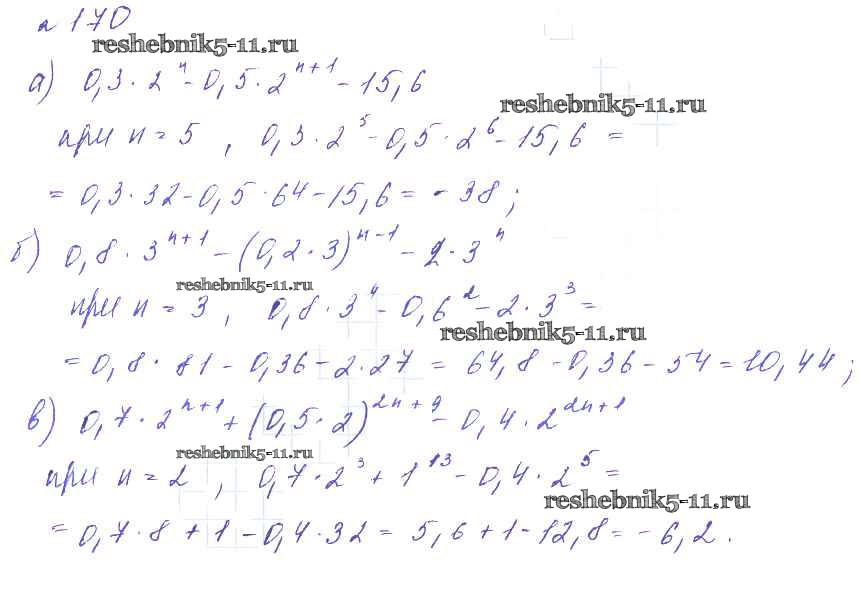 № 170
reshebnik5-11.ru
а) 0,3 · 2ⁿ - 0,5 · 2ⁿ⁺¹ - 15,6
reshebnik5-11.ru
при n = 5 , 0,3 · 2⁵ - 0,5 · 2⁶ - 15,6 =
= 0,3 · 32 - 0,5 · 64 - 15,6 = - 38 ;
б) 0,8 · 3ⁿ⁺¹ - (0,2 · 3)ⁿ⁻¹ - 2 · 3ⁿ
reshebnik5-11.ru
при n = 3 , 0,8 · 3⁴ - 0,6² - 2 · 3³ =
reshebnik5-11.ru
= 0,8 · 81 - 0,36 - 2 · 27 = 64,8 - 0,36 - 54 = 10,44 ;
в) 0,7 · 2ⁿ⁺¹ + (0,5 · 2)²ⁿ⁺⁹ - 0,4 · 2²ⁿ⁺¹
reshebnik5-11.ru
при n = 2 , 0,7 · 2³ + 1¹³ - 0,4 · 2⁵ =
reshebnik5-11.ru
= 0,7 · 8 + 1 - 0,4 · 32 = 5,6 + 1 - 12,8 = - 6,2 .